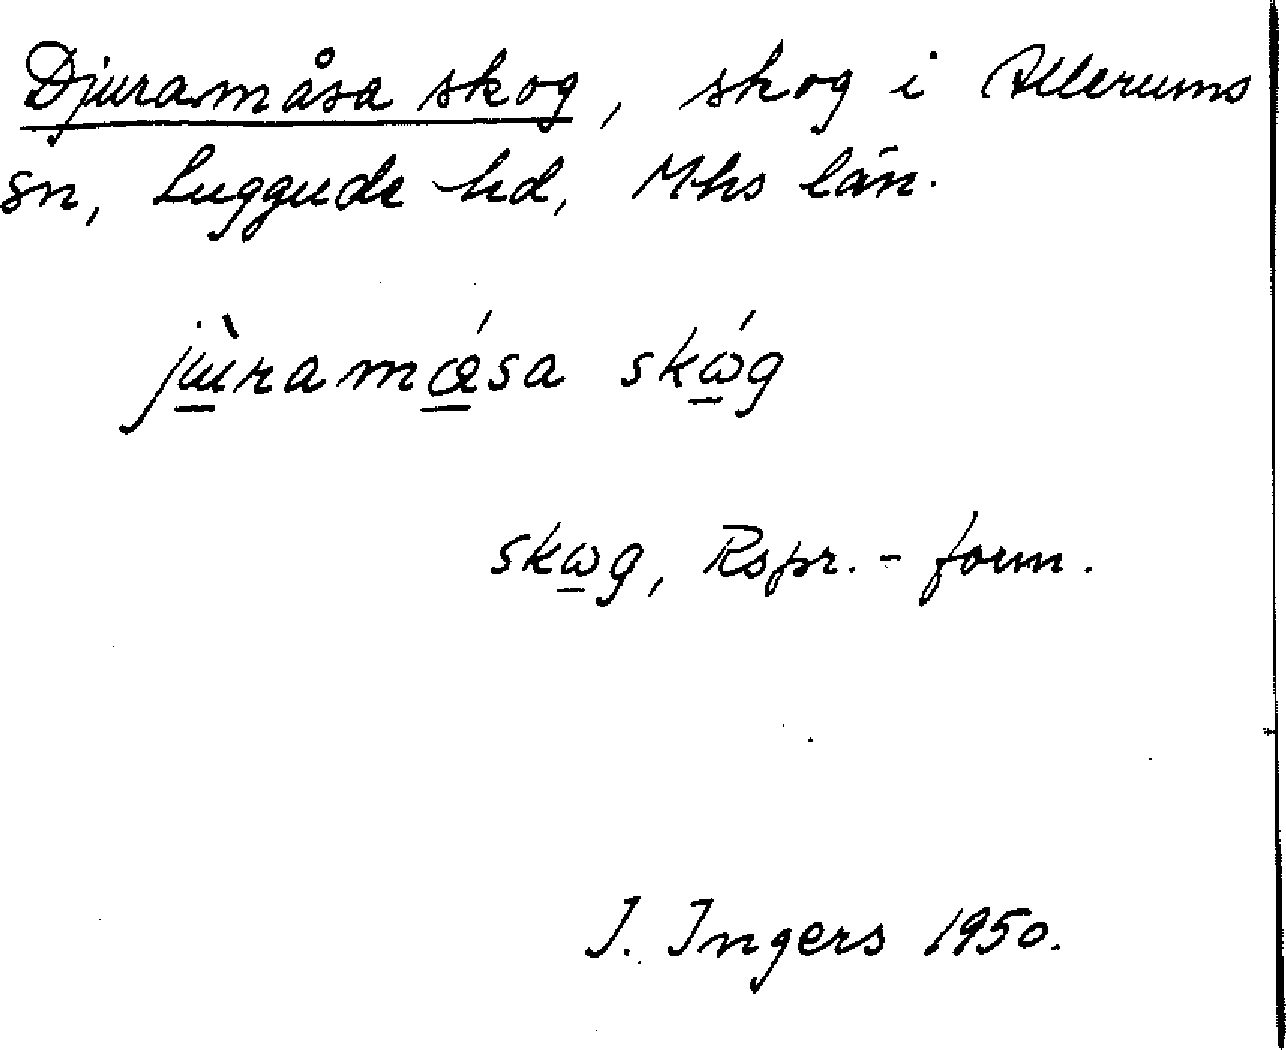 Djuramåsa skog, skog i Allerums
sn, Luggude hd, Mhs län.
jɯ̲̀ramœ̲́sa skώ̲g
skω̲g, Rspr.-form.
I. Ingers 1950.